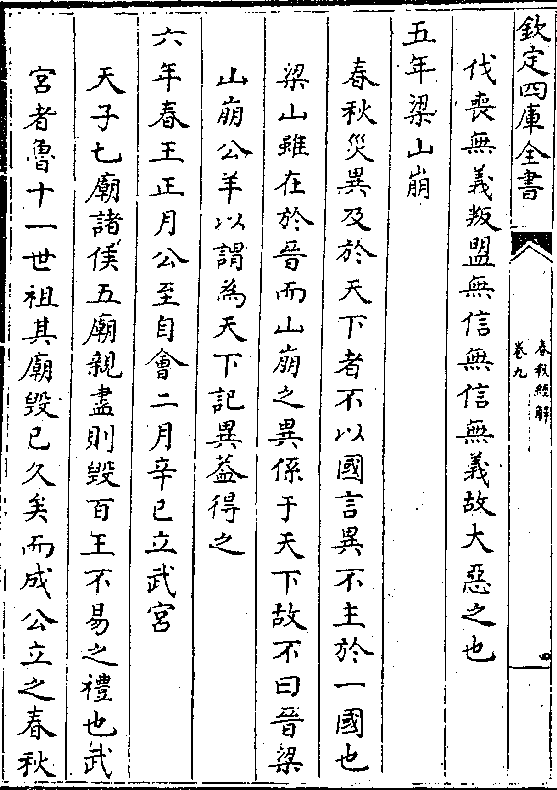 欽定四庫全書
春秋經解
卷九
伐喪無義叛盟無信無信無義故大惡之也
五年梁山崩
春秋災異及於天下者不以國言異不主於一國也
梁山雖在於晉而山崩之異係于天下故不曰晉梁
山崩公羊以謂為天下記異蓋得之
六年春王正月公至自會二月辛巳立武宮
天子七廟諸侯五廟親盡則毀百王不易之禮也武
宮者魯十一世祖其廟毀已久矣而成公立之春秋